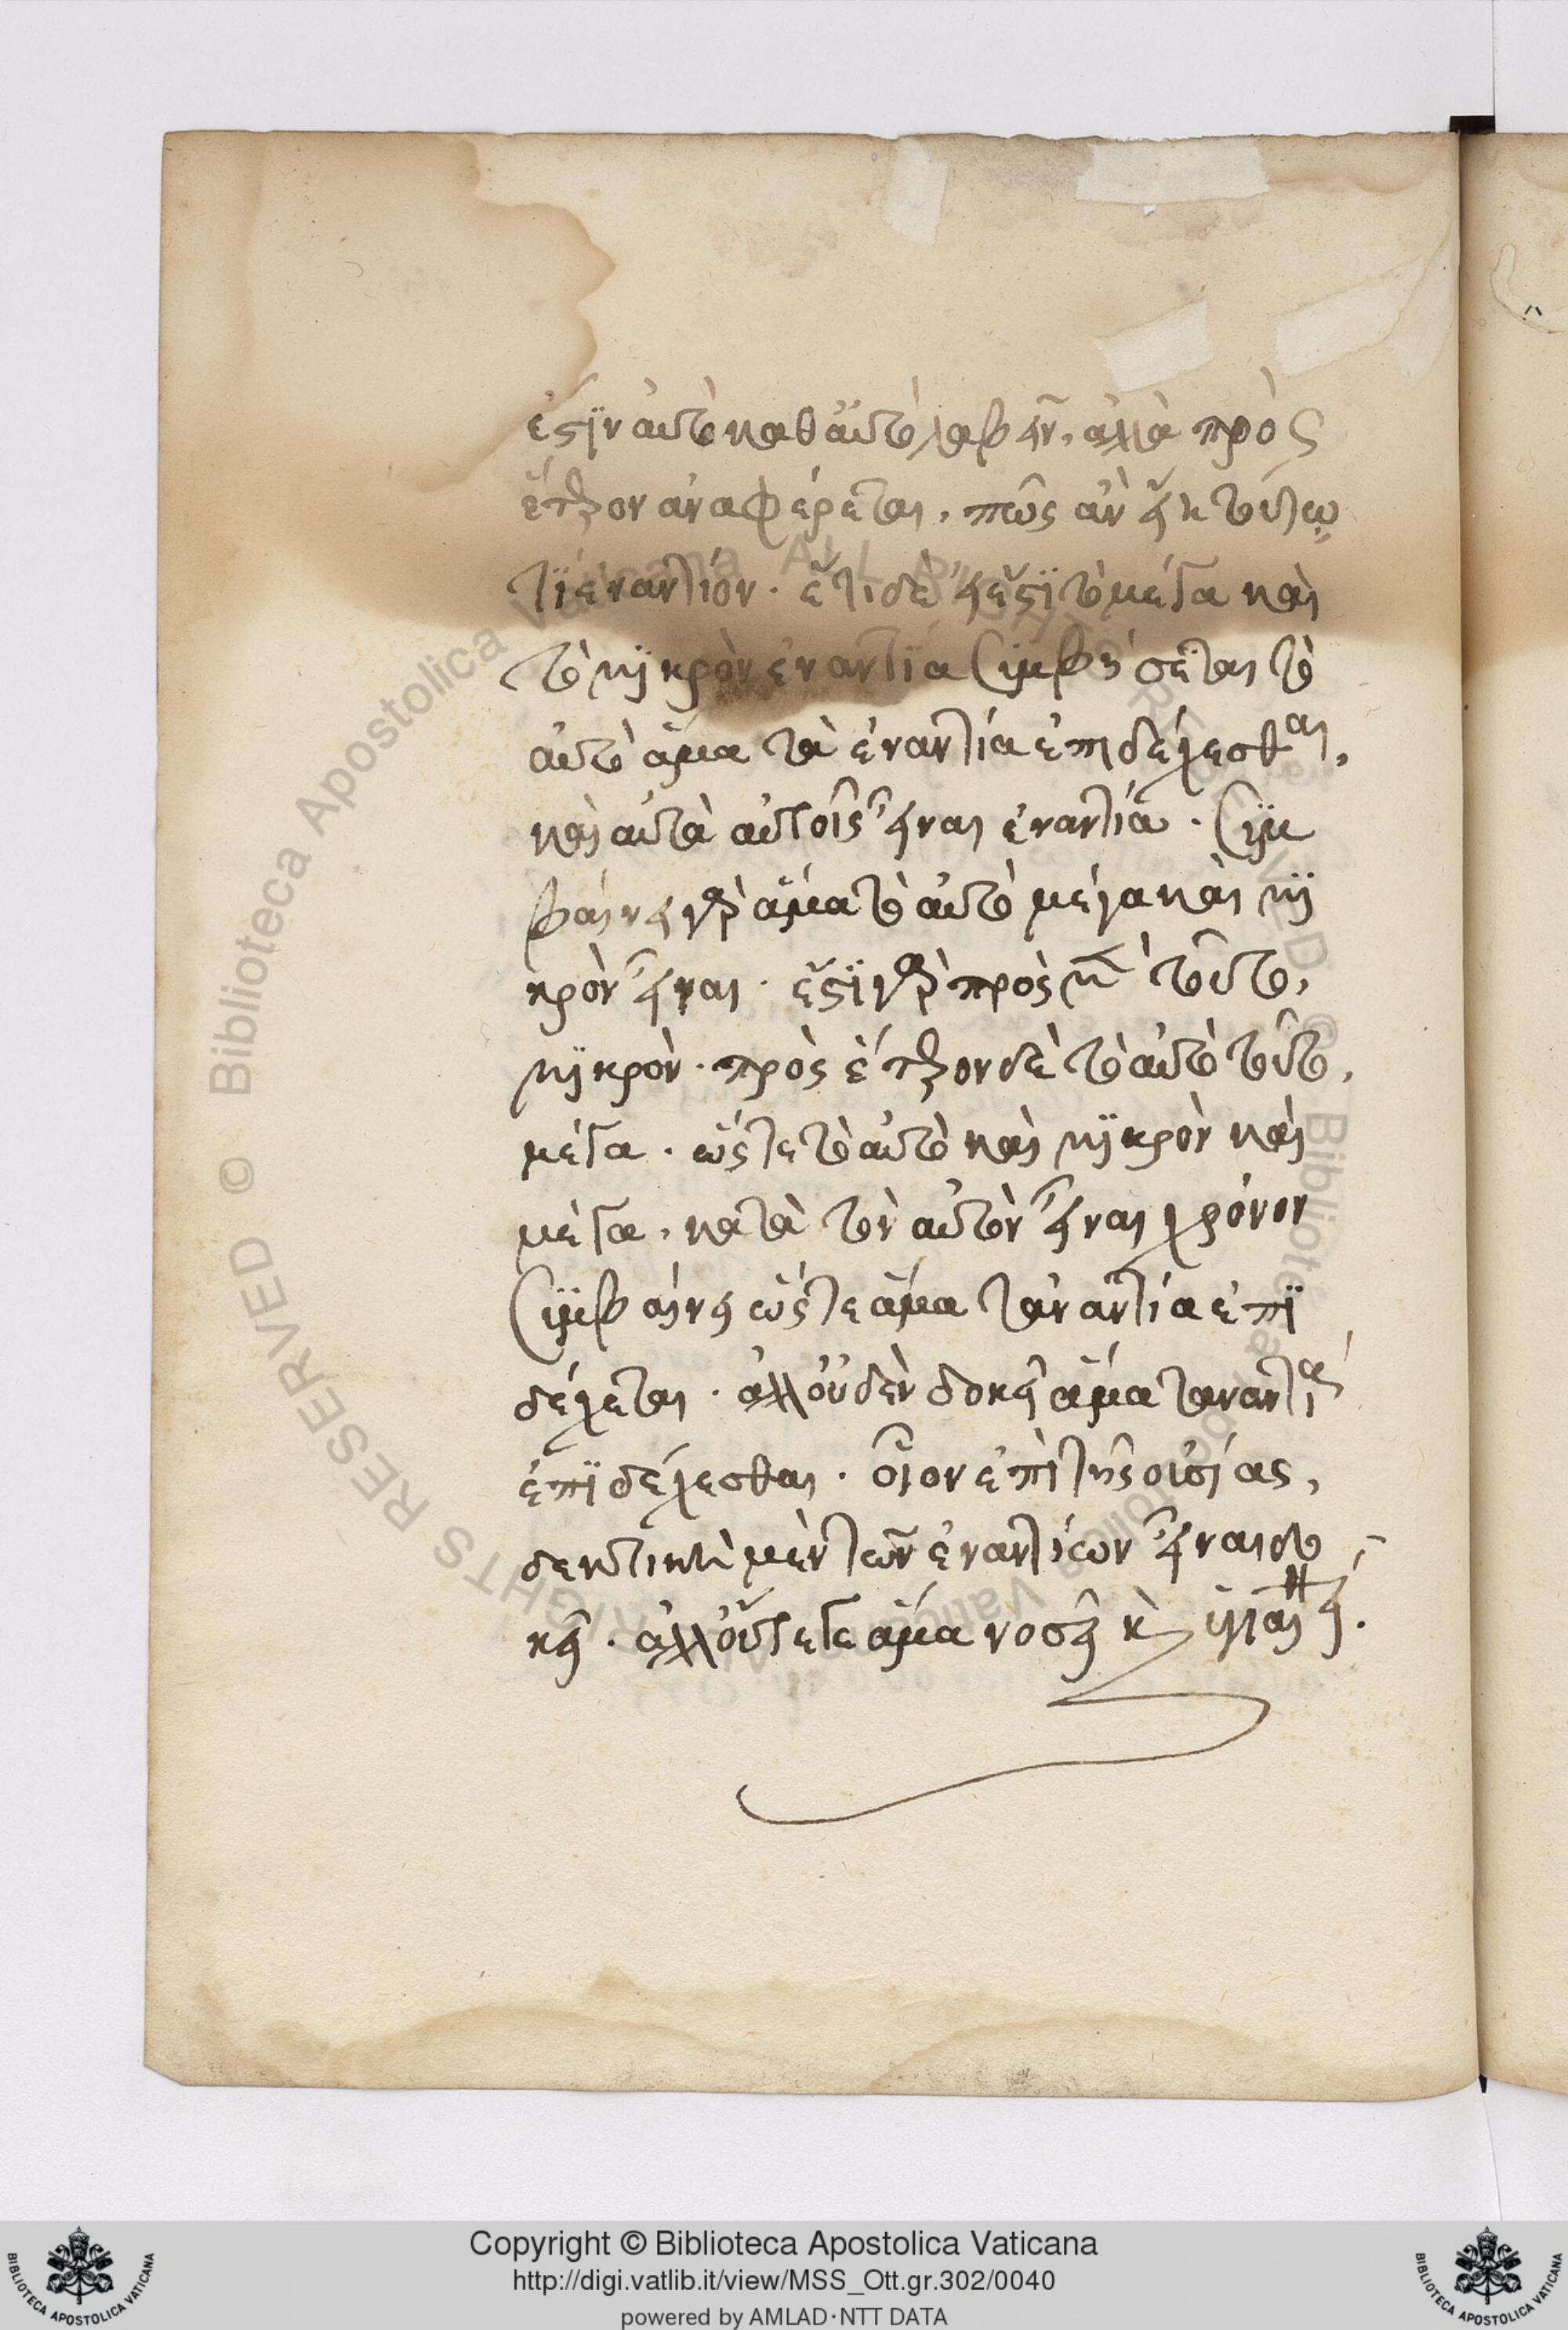 ἐστὶν αὐτὸ καθ' αὑτὸ λαβεῖν, ἀλλὰ πρὸς
ἕτερον ἀναφέρεται, πῶς ἂν εἴη τούτῳ
τὶ ἐναντίον. ἔτι δὲ εἰ ἔσται τὸ μέγα καὶ
τὸ μικρὸν ἐναντία συμβήσεται τὸ
αὐτὸ ἅμα τὰ ἐναντία ἐπιδέχεσθαι,
καὶ αὐτὰ αὑτοῖς εἶναι ἐναντία. συμ
βαίνει γὰρ ἅμα τὸ αὐτὸ μέγα καὶ μι
κρὸν εἶναι. ἔστι γὰρ πρὸς μὲν τοῦτο,
μικρὸν. πρὸς ἕτερον δὲ τὸ αὐτὸ τοῦτο,
μέγα. ὥστε τὸ αὐτὸ καὶ μικρὸν καὶ
μέγα, κατὰ τὸν αὐτὸν εἶναι χρόνον
συμβαίνει ὥστε ἅμα τἀναντία ἐπι
δέχεται. ἀλλ' οὐδὲν δοκεῖ ἅμα τἀναντία
ἐπιδέχεσθαι. οἷον ἐπὶ τῆς οὐσίας,
δεκτικὴ μὲν τῶν ἐναντίων εἶναι δο
κεῖ. ἀλλ' οὔτε γε ἅμα νοσεῖ καὶ ὑγιαίνει.
Copyright © Biblioteca Apostolica Vaticana
http://digi.vatlib.it/view/MSS_Ott.gr.302/0040
powered by AMLAD·NTT DATA